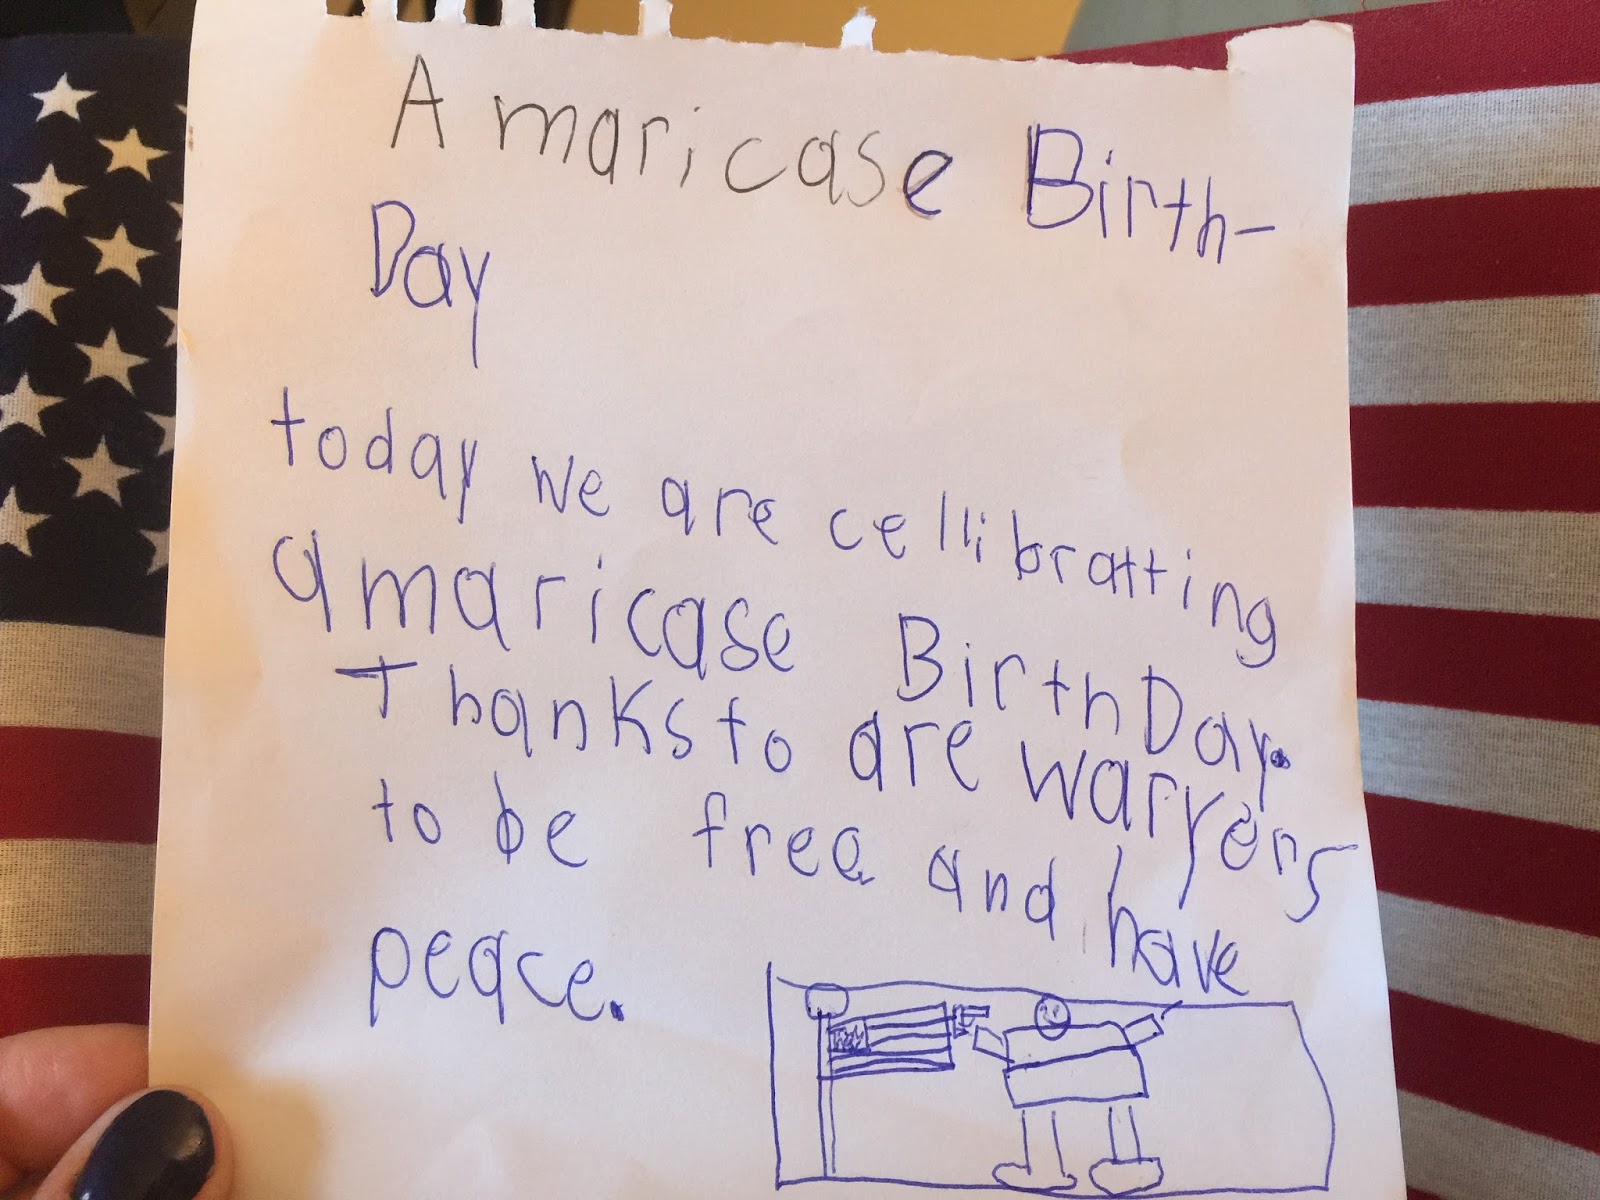 Amaricase Birth-
Day
today we are cellibratting
amaricase BirthDay.
Thanks to are warryers
to be free and have
peace.